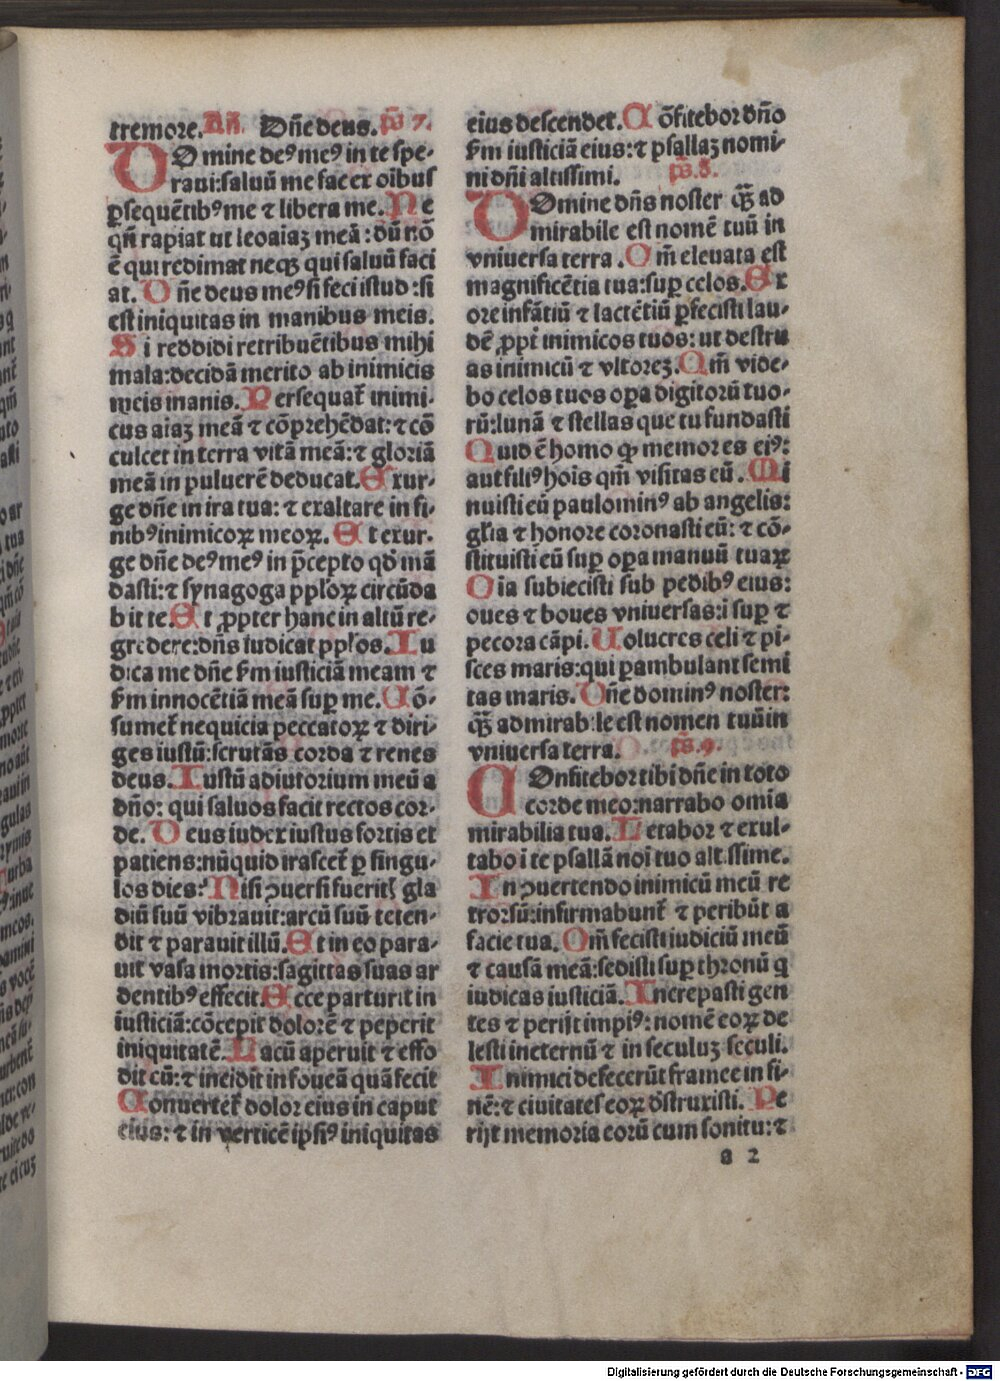 tremore. Añ. Dñe deus. ps̄ 7.
DOmine deꝰ meꝰ in te spe-
raui: saluū me fac ex oībus
ꝑsequētibꝰ me ⁊ libera me. Ne
qñ rapiat ut leo aiaꝫ meā: dū nō
ē qui redimat neqꝫ qui saluū faci
at. Dñe deus meꝰ si feci istud: si
est iniquitas in manibus meis.
Si reddidi retribuētibus mihi
mala: decidā merito ab inimicis
meis inanis. Persequat̄ inimi-
cus aiaꝫ meā ⁊ cōprehēdat: ⁊ cō
culcet in terra vitā meā: ⁊ gloriā
meā in puluerē deducat. Exur-
ge dñe in ira tua: ⁊ exaltare in fi-
nibꝰ inimicoꝝ meoꝝ. Et exur-
ge dñe deꝰ meꝰ in p̄cepto qd̓ mā
dasti: ⁊ synagoga pplo̓ꝝ circūda
bit te. Et ꝓpter hanc in altū re-
gredere: dñs iudicat ppl̓os. Iu
dica me dñe s̓m iusticiā meam ⁊
s̓m innocētiā meā suꝑ me. Cō-
sumet̄ nequicia peccatoꝝ ⁊ diri-
ges iustū: scrutās corda ⁊ renes
deus. Iustū adiutorium meū a
dño: qui saluos facit rectos cor-
de. Deus iudex iustus fortis et
patiens: nūquid irascet̄ ꝑ singu-
los dies: Nisi ↄuersi fuerit̄ gla
diū suū vibrauit: arcū suū teten-
dit ⁊ parauit illū. Et in eo para-
uit vasa mortis: sagittas suas ar
dentibꝰ effecit. Ecce parturit in
iusticiā: cōcepit dolorē ⁊ peperit
iniquitatē. Lacū aperuit ⁊ effo
dit eū: ⁊ incidit in foueā quā fecit
Conuertet̄ dolor eius in caput
eius: ⁊ in verticē ipsiꝰ iniquitas
eius descendet. Cōfitebor dño
s̓m iusticiā eius: ⁊ psallaꝫ nomi-
ni dñi altissimi. ps̄. 8.
DOmine dñs noster qꝫ̄ ad
mirabile est nomē tuū in
vniuersa terra. Qm̄ eleuata est
magnificētia tua: suꝑ celos. Ex
ore infātiū ⁊ lactētiū ꝑfecisti lau-
dē ꝓpt̄ inimicos tuos: ut destru
as inimicū ⁊ vltoreꝫ. Qm̄ vide-
bo celos tuos oꝑa digitorū tuo-
rū: lunā ⁊ stellas que tu fundasti
Quid ē homo ꝙ memor es eiꝰ:
aut filiꝰ hois qm̄ visitas eū. Mi
nuisti eū paulominꝰ ab angelis:
gl̓ia ⁊ honore coronasti eū: ⁊ cō-
stituisti eū suꝑ oꝑa manuū tuaꝝ
Oīa subiecisti sub pedibꝰ eius:
oues ⁊ boues vniuersas: i suꝑ ⁊
pecora cāpi. Uolucres celi ⁊ pi-
sces maris: qui ꝑambulant semi
tas maris. Dñe dominꝰ noster:
qꝫ̄ admirabile est nomen tuū in
vniuersa terra. ps̄. 9.
COnfitebor tibi dñe in toto
corde meo: narrabo omīa
mirabilia tua. Letabor ⁊ exul-
tabo i te psallā noi tuo altissime.
In ↄuertendo inimicū meū re
trorsū: infirmabunt̄ ⁊ peribūt a
facie tua. Qm̄ fecisti iudiciū meū
⁊ causā meā: sedisti suꝑ thronū q
iudicas iusticiā. Increpasti gen
tes ⁊ perijt impiꝰ: nomē eoꝝ de
lesti ineternū ⁊ in seculuꝫ seculi.
Inimici defecerūt framee in fi-
nē: ⁊ ciuitates eoꝝ dstruxisti. Pe
rijt memoria eorū cum sonitu: ⁊
a 2
Digitalisierung gefördert durch die Deutsche Forschungsgemeinschaft - DFG